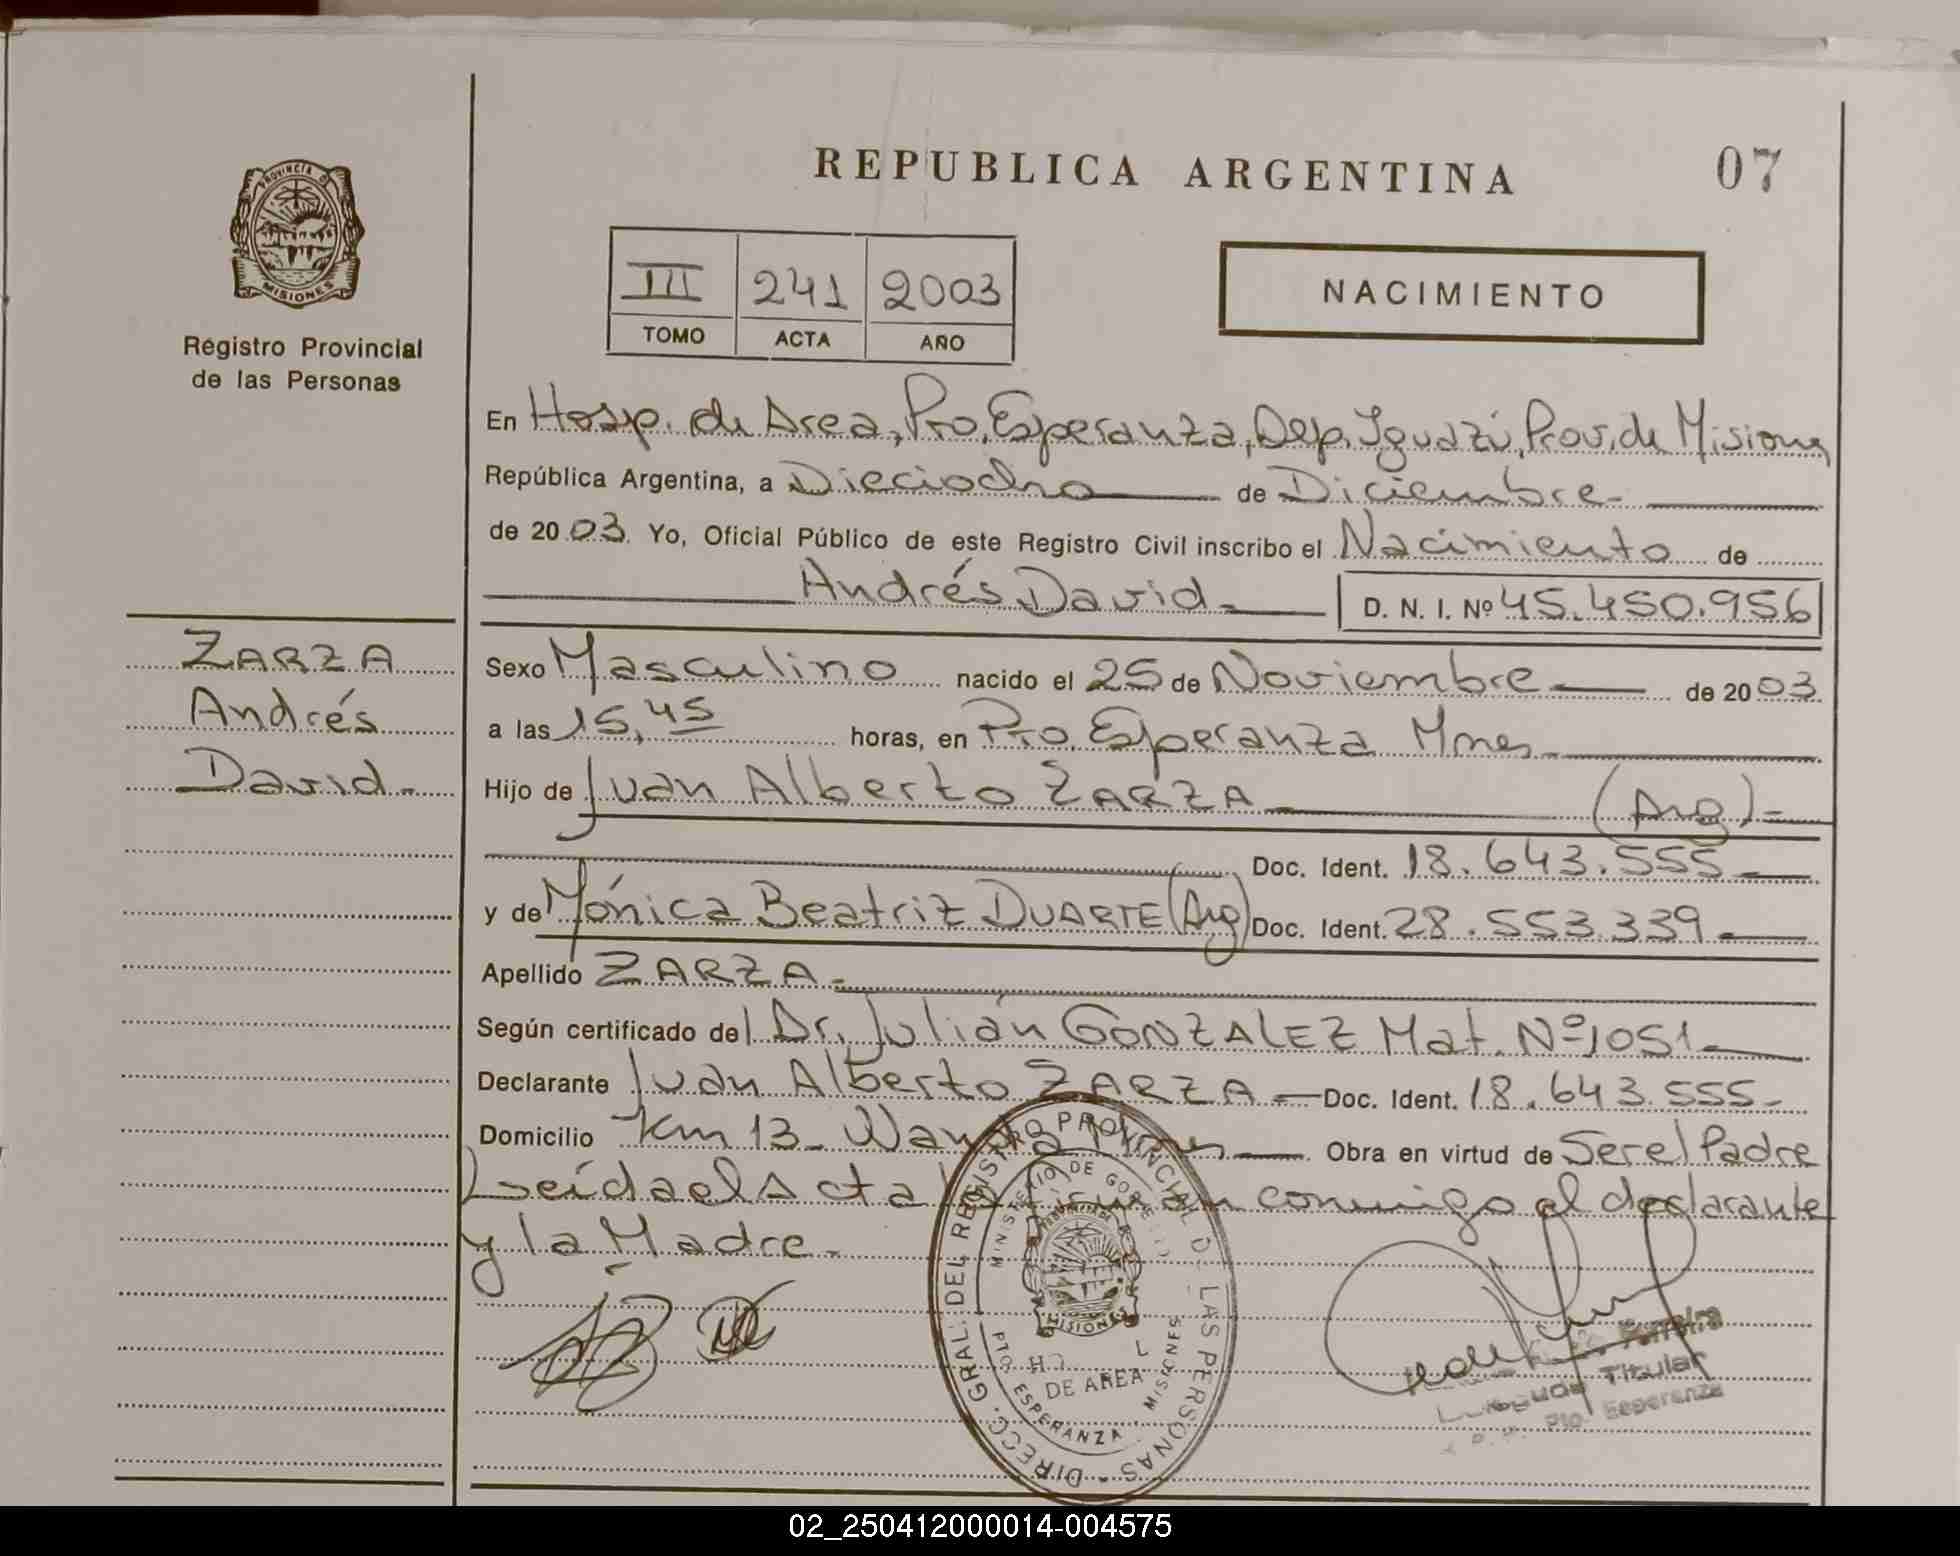 REPUBLICA ARGENTINA
07
PROVINCIA D
MISIONES
Registro Provincial
de las Personas
III 241 2003
TOMO ACTA AÑO
NACIMIENTO
En Hosp. de Area, Pto. Esperanza, Dep. Iguazú, Prov. de Misiones
República Argentina, a Dieciocho de Diciembre
de 2003 Yo, Oficial Público de este Registro Civil inscribo el Nacimiento de
Andrés David D. N. I. Nº 45.450.956
ZARZA
Andrés
David
Sexo Masculino nacido el 25 de Noviembre de 2003
a las 15,45 horas, en Pto. Esperanza Mnes
Hijo de Juan Alberto ZARZA (Arg)
Doc. Ident. 18.643.555
y de Mónica Beatriz DUARTE (Arg) Doc. Ident. 28.553.339
Apellido ZARZA
Según certificado del Dr. Julián GONZALEZ Mat. Nº 1051
Declarante Juan Alberto ZARZA Doc. Ident. 18.643.555
Domicilio Km 13 - Wanda Mnes Obra en virtud de Ser el Padre
Leída el Acta la firman conmigo el declarante
y la Madre.
DIRECC. GRAL. DEL REGISTRO PROVINCIAL DE LAS PERSONAS
MINISTERIO DE
MISIONES
DE AREA
PTO ESPERANZA MISIONES
Titular
Pto. Esperanza
02_250412000014-004575